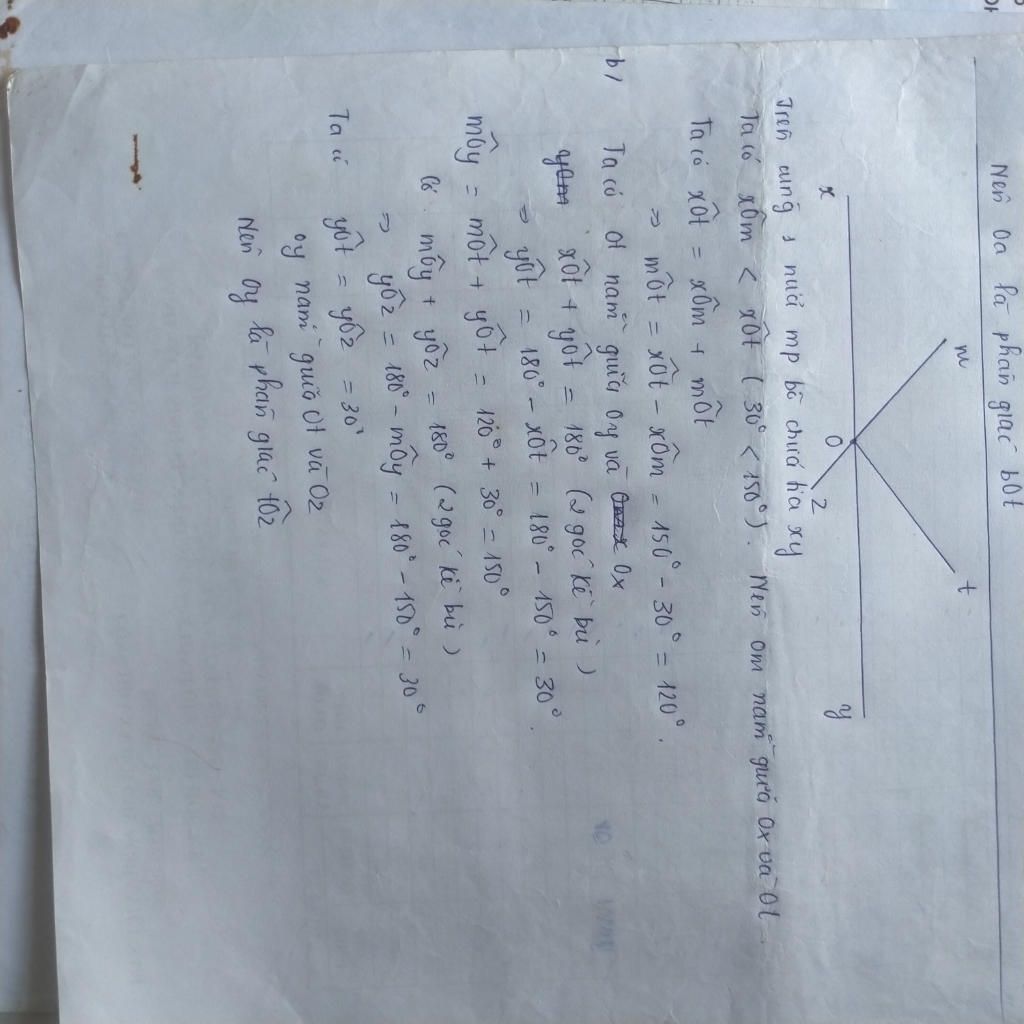 Nên Oa là phân giác bOt
m
t
x
O
z
y
Trên cùng 1 nửa mp bờ chứa tia xy
Ta có xÔm < xÔt (30° < 150°). Nên Om nằm giữa Ox và Ot
Ta có xÔt = xÔm + mÔt
⇒ mÔt = xÔt - xÔm = 150° - 30° = 120°.
b/ Ta có Ot nằm giữa Oy và Ox
xÔt + yÔt = 180° (2 góc kề bù)
⇒ yÔt = 180° - xÔt = 180° - 150° = 30°.
mÔy = mÔt + yÔt = 120° + 30° = 150°
Có mÔy + yÔz = 180° (2 góc kề bù)
⇒ yÔz = 180° - mÔy = 180° - 150° = 30°
Ta có yÔt = yÔz = 30°
Oy nằm giữa Ot và Oz
Nên Oy là phân giác tÔz